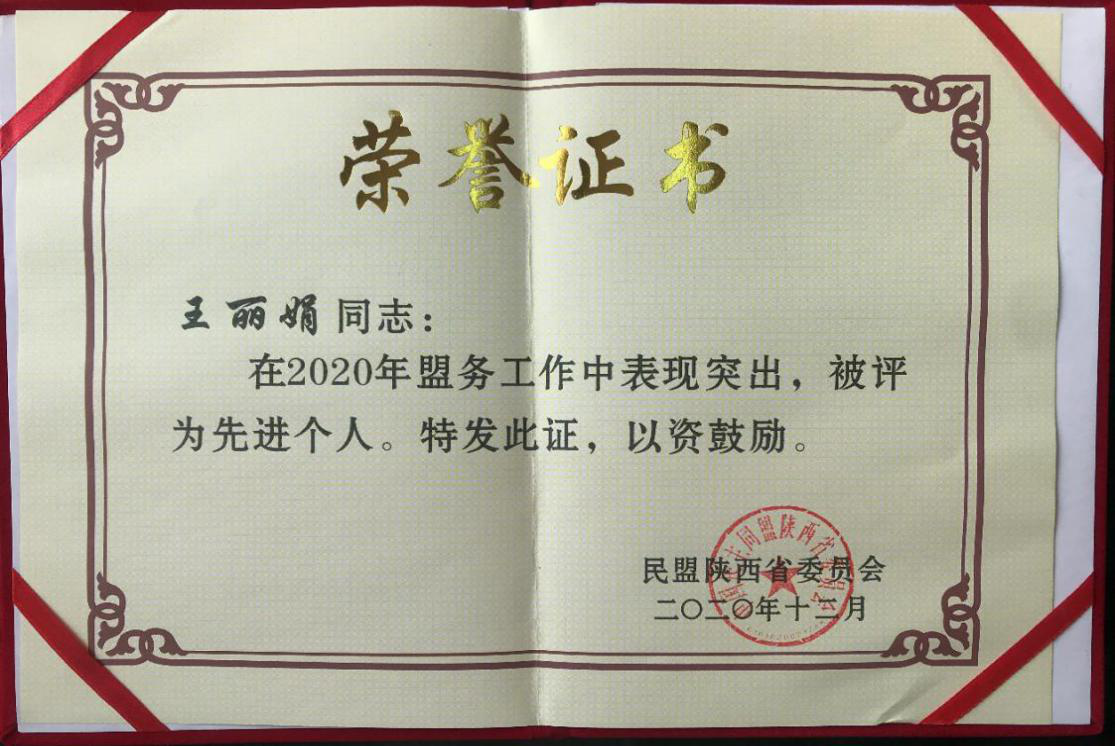 荣誉证书
王丽娟同志：
在2020年盟务工作中表现突出，被评
为先进个人。特发此证，以资鼓励。
民盟陕西省委员会
二〇二〇年十二月
中国民主同盟陕西省委员会